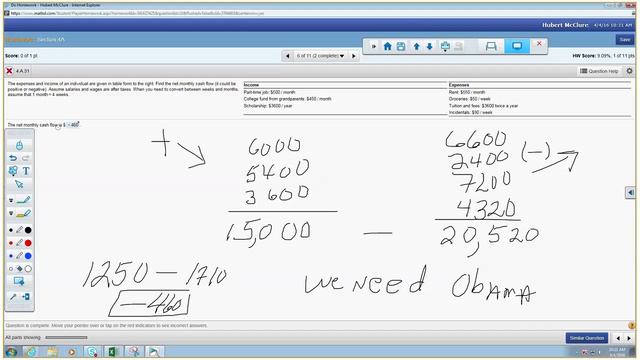 Do Homework - Hubert McClure - Internet Explorer
Hubert McClure
4/4/16 10:31 AM
Section 4A
Save
Score: 0 of 1 pt
6 of 11 (2 complete)
HW Score: 9.09%, 1 of 11 pts
4.A.31
Question Help
The expenses and income of an individual are given in table form to the right. Find the net monthly cash flow (it could be
positive or negative). Assume salaries and wages are after taxes. When you need to convert between weeks and months,
assume that 1 month = 4 weeks.
Income
Expenses
Part-time job: $500 / month
Rent: $550 / month
College fund from grandparents: $450 / month
Groceries: $50 / week
Scholarship: $3600 / year
Tuition and fees: $3600 twice a year
Incidentals: $90 / week
The net monthly cash flow is $ -460
+
6000
6600
5400
2400 (-)
3600
7200
4320
15,000 — 20,520
1250 - 1710
-460
we need Obama
Question is complete. Move your pointer over or tap on the red indicators to see incorrect answers.
All parts showing
Similar Question